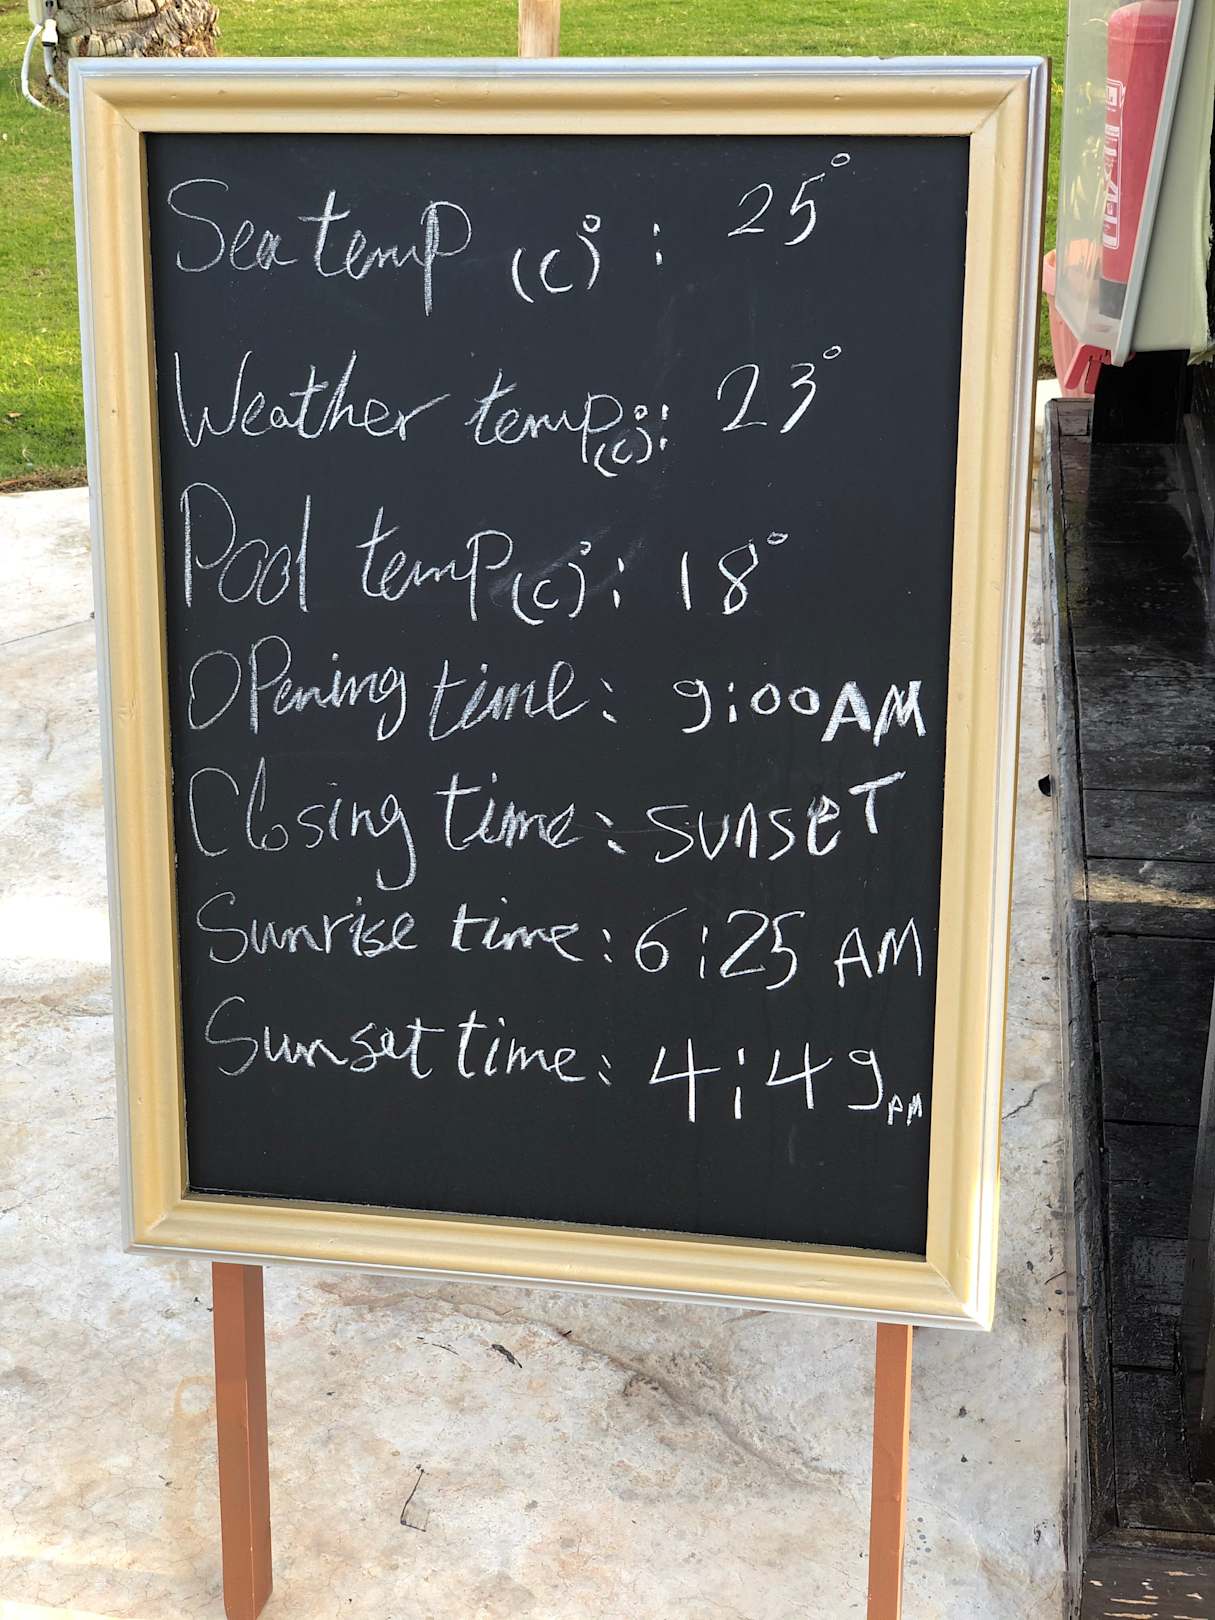 Sea temp (C)° : 25°
Weather temp (C)° : 23°
Pool temp (C)° : 18°
Opening time : 9:00 AM
Closing time : sunset
Sunrise time : 6:25 AM
Sunset time : 4:49 PM